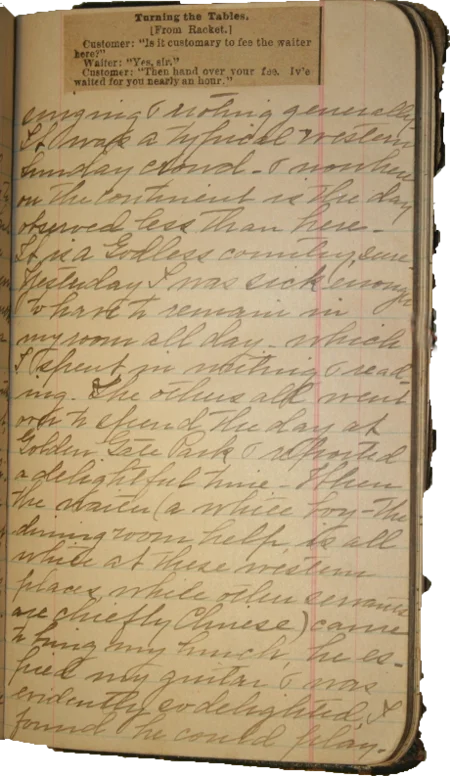 Turning the Tables.
[From Racket.]
Customer: "Is it customary to fee the waiter
here?"
Waiter: "Yes, sir."
Customer: "Then hand over your fee. Iv'e
waited for you nearly an hour."
singing & rioting generally.
It was a typical western
Sunday crowd - & nowhere
on the Continent is the day
observed less than here -
It is a Godless country, sure.
Yesterday I was sick enough
to have to remain in
my room all day - which
I spent in writing & read-
ing. The others all went
out to spend the day at
Golden Gate Park & reported
a delightful time - When
the waiter (a white boy - the
dining room help is all
white at these western
places, while other servants
are chiefly Chinese) came
to bring my lunch, he es-
pied my guitar & was
evidently so delighted, I
found he could play -